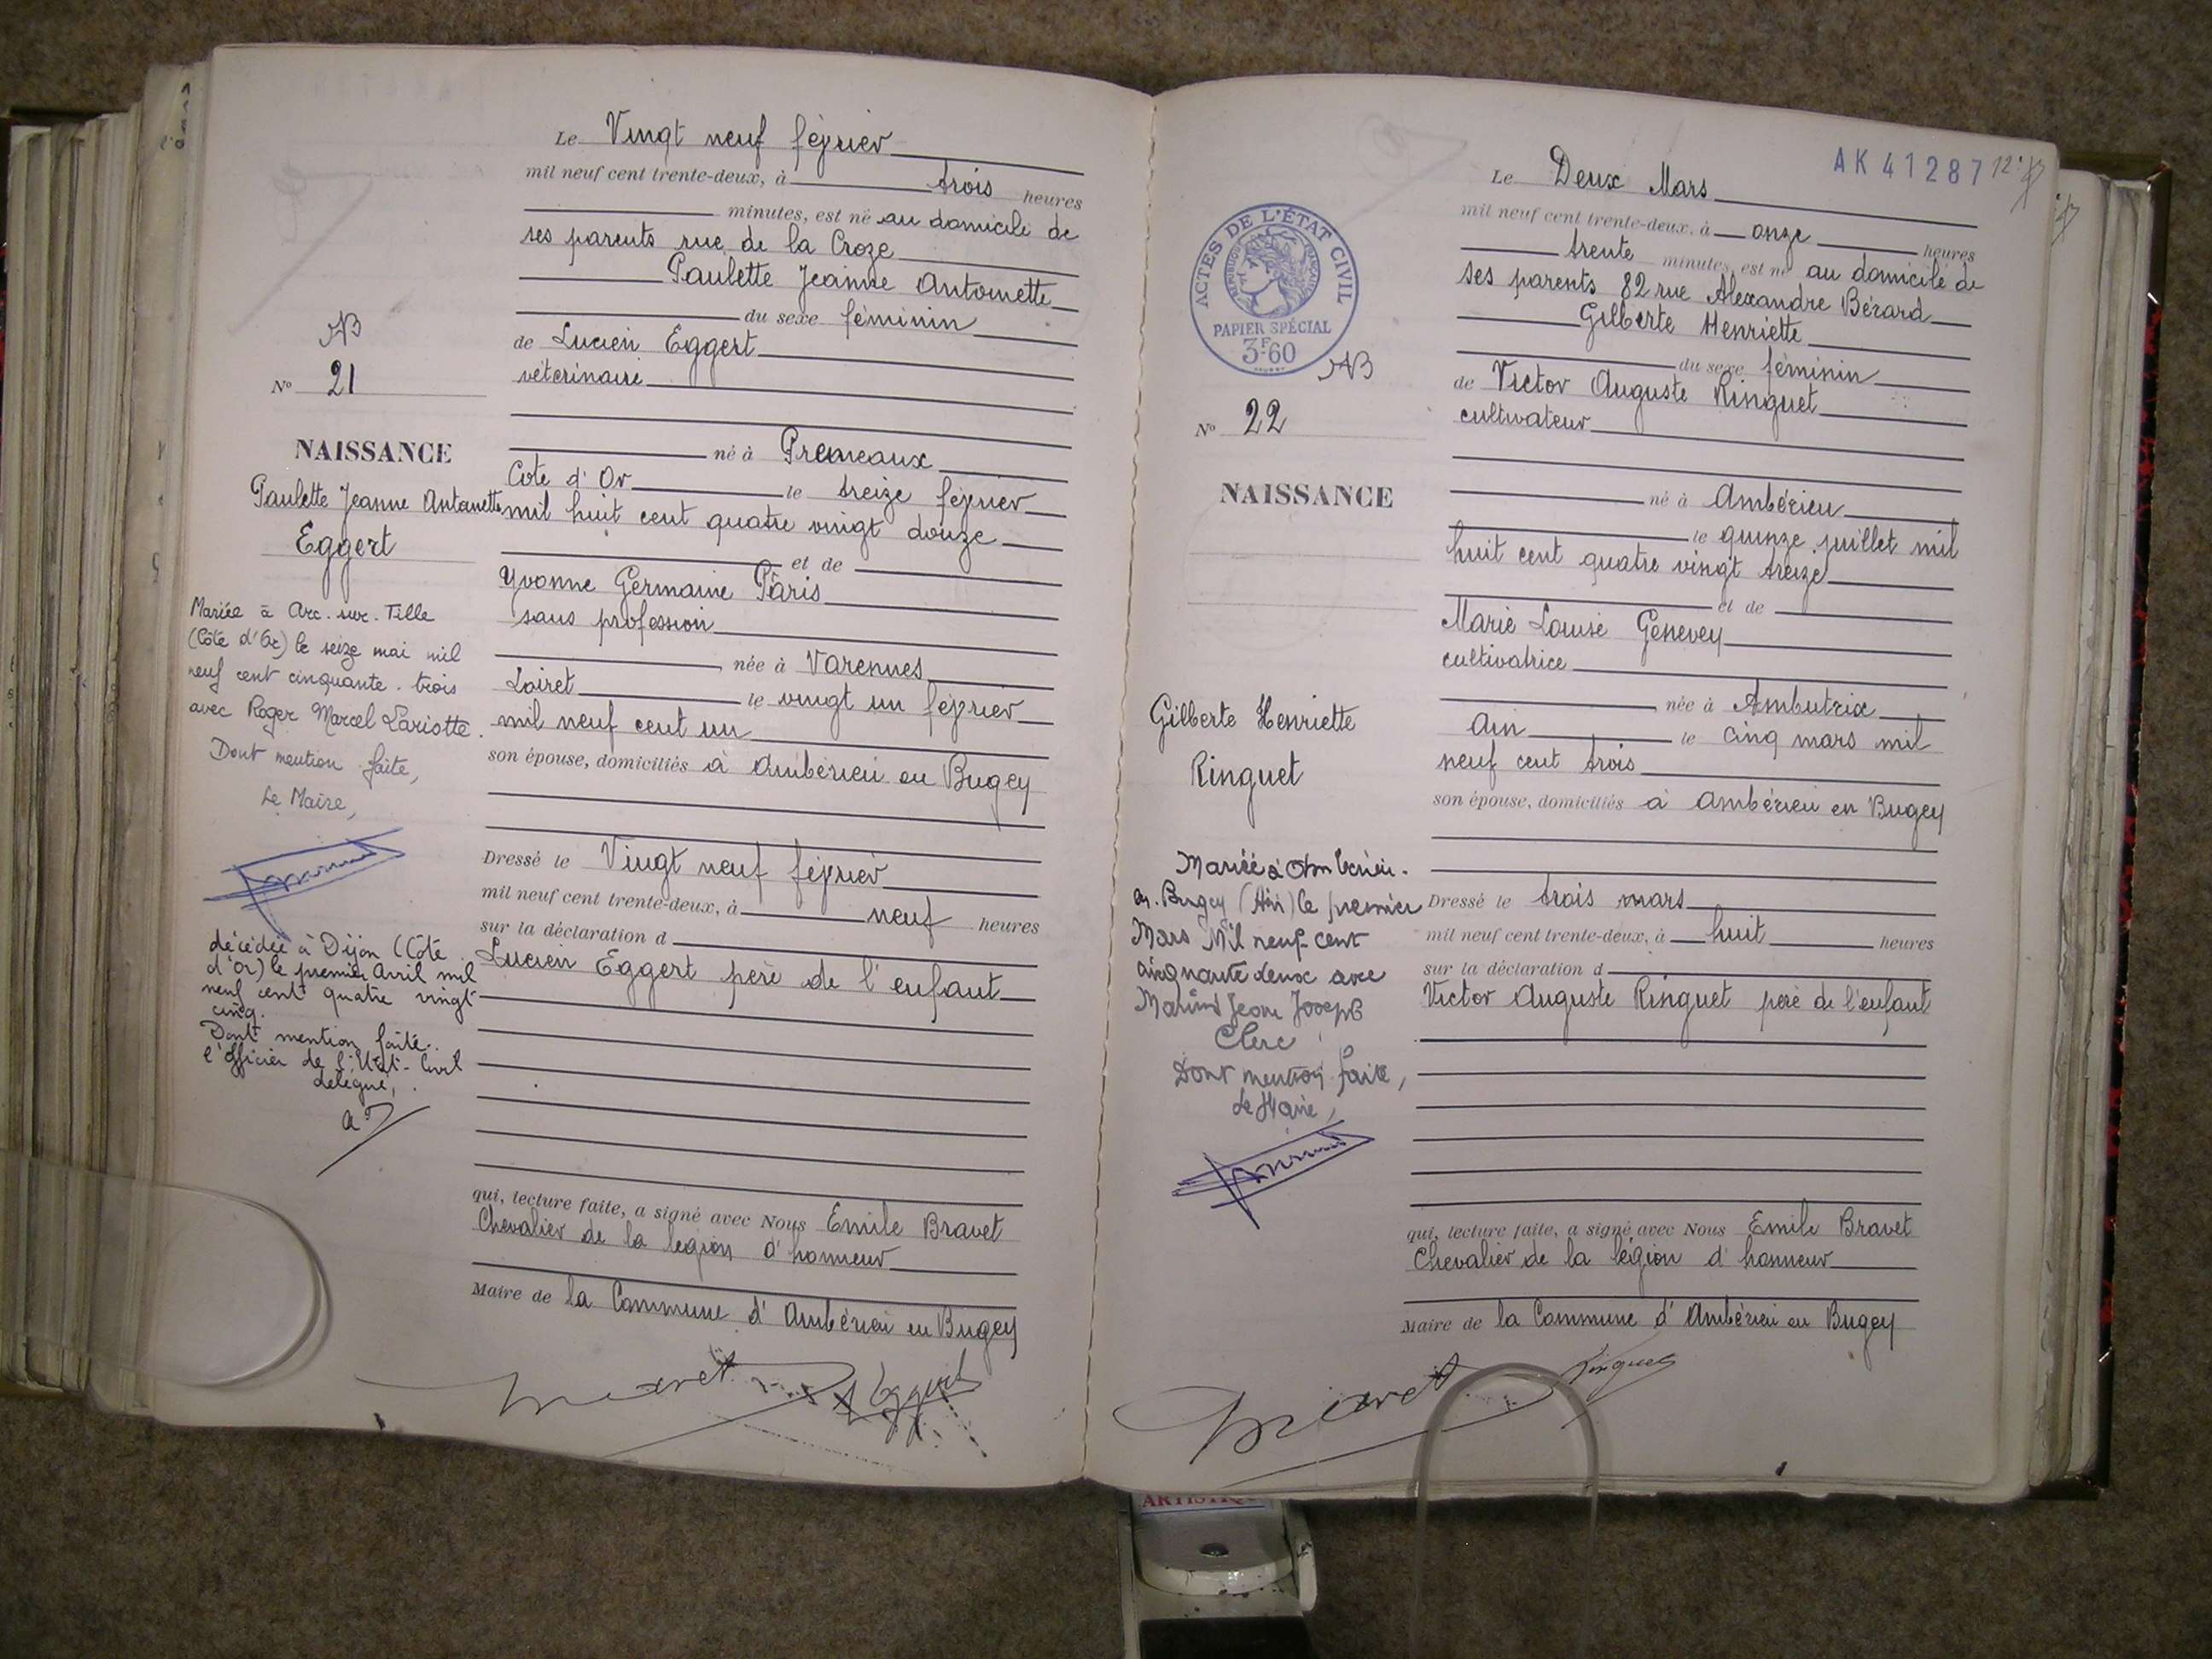 Le Vingt neuf février
mil neuf cent trente-deux, à trois heures
minutes, est né au domicile de
ses parents rue de la Croze
Paulette Jeanne Antoinette
du sexe féminin
de Lucien Eggert
vétérinaire
né à Premeaux
Cote d'Or le treize février
mil huit cent quatre vingt douze
et de
Yvonne Germaine Pâris
sans profession
née à Varennes
Loiret le vingt un février
mil neuf cent un
son épouse, domiciliés à Ambérieu en Bugey
Dressé le Vingt neuf février
mil neuf cent trente-deux, à neuf heures
sur la déclaration d
Lucien Eggert père de l'enfant
qui, lecture faite, a signé avec Nous Emile Bravet
Chevalier de la légion d'honneur
Maire de la Commune d'Ambérieu en Bugey
Bravet Eggert
AB
N° 21
NAISSANCE
Paulette Jeanne Antoinette
Eggert
Mariée à Arc-sur-Tille
(Côte d'Or) le seize mai mil
neuf cent cinquante-trois
avec Roger Marcel Lariotte.
Dont mention faite,
Le Maire,
décédée à Dijon (Côte
d'Or) le premier avril mil
neuf cent quatre vingt
cinq.
Dont mention faite.
l'Officier de l'Etat-Civil
délégué,
AK 41287
Le Deux Mars
mil neuf cent trente-deux, à onze heures
trente minutes, est né au domicile de
ses parents 82 rue Alexandre Bérard
Gilberte Henriette
du sexe féminin
de Victor Auguste Ringuet
cultivateur
né à Ambérieu
le quinze juillet mil
huit cent quatre vingt treize
et de
Marie Louise Genevey
cultivatrice
née à Ambutrix
Ain le cinq mars mil
neuf cent trois
son épouse, domiciliés à Ambérieu en Bugey
Dressé le trois mars
mil neuf cent trente-deux, à huit heures
sur la déclaration d
Victor Auguste Ringuet père de l'enfant
qui, lecture faite, a signé avec Nous Emile Bravet
Chevalier de la légion d'honneur
Maire de la Commune d'Ambérieu en Bugey
Bravet Ringuet
ACTES DE L'ÉTAT CIVIL
RÉPUBLIQUE FRANÇAISE
PAPIER SPÉCIAL
3F60
AB
N° 22
NAISSANCE
Gilberte Henriette
Ringuet
Mariée à Ambérieu-
en-Bugey (Ain) le premier
Mars Mil neuf cent
cinquante deux avec
Marius Jean Joseph
Clerc
Dont mention faite,
Le Maire,
ARTISTIQUE